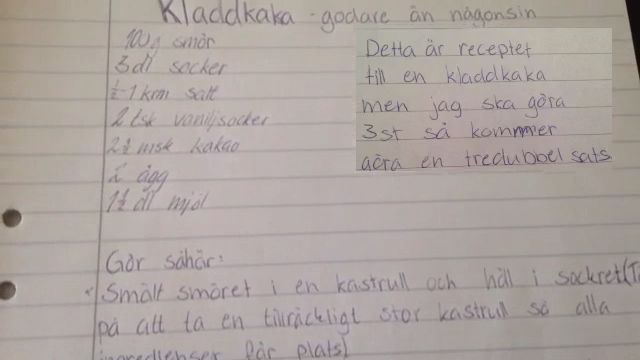 Kladdkaka - godare än någonsin
100 g smör
3 dl socker
½-1 krm salt
2 tsk vaniljsocker
2½ msk kakao
2 ägg
1½ dl mjöl
Detta är receptet
till en kladdkaka
men jag ska göra
3st så kommer
göra en tredubbel sats
Gör såhär:
Smält smöret i en kastrull och häll i sockret (Tä
på att ta en tillräckligt stor kastrull så alla
ingredienser får plats)